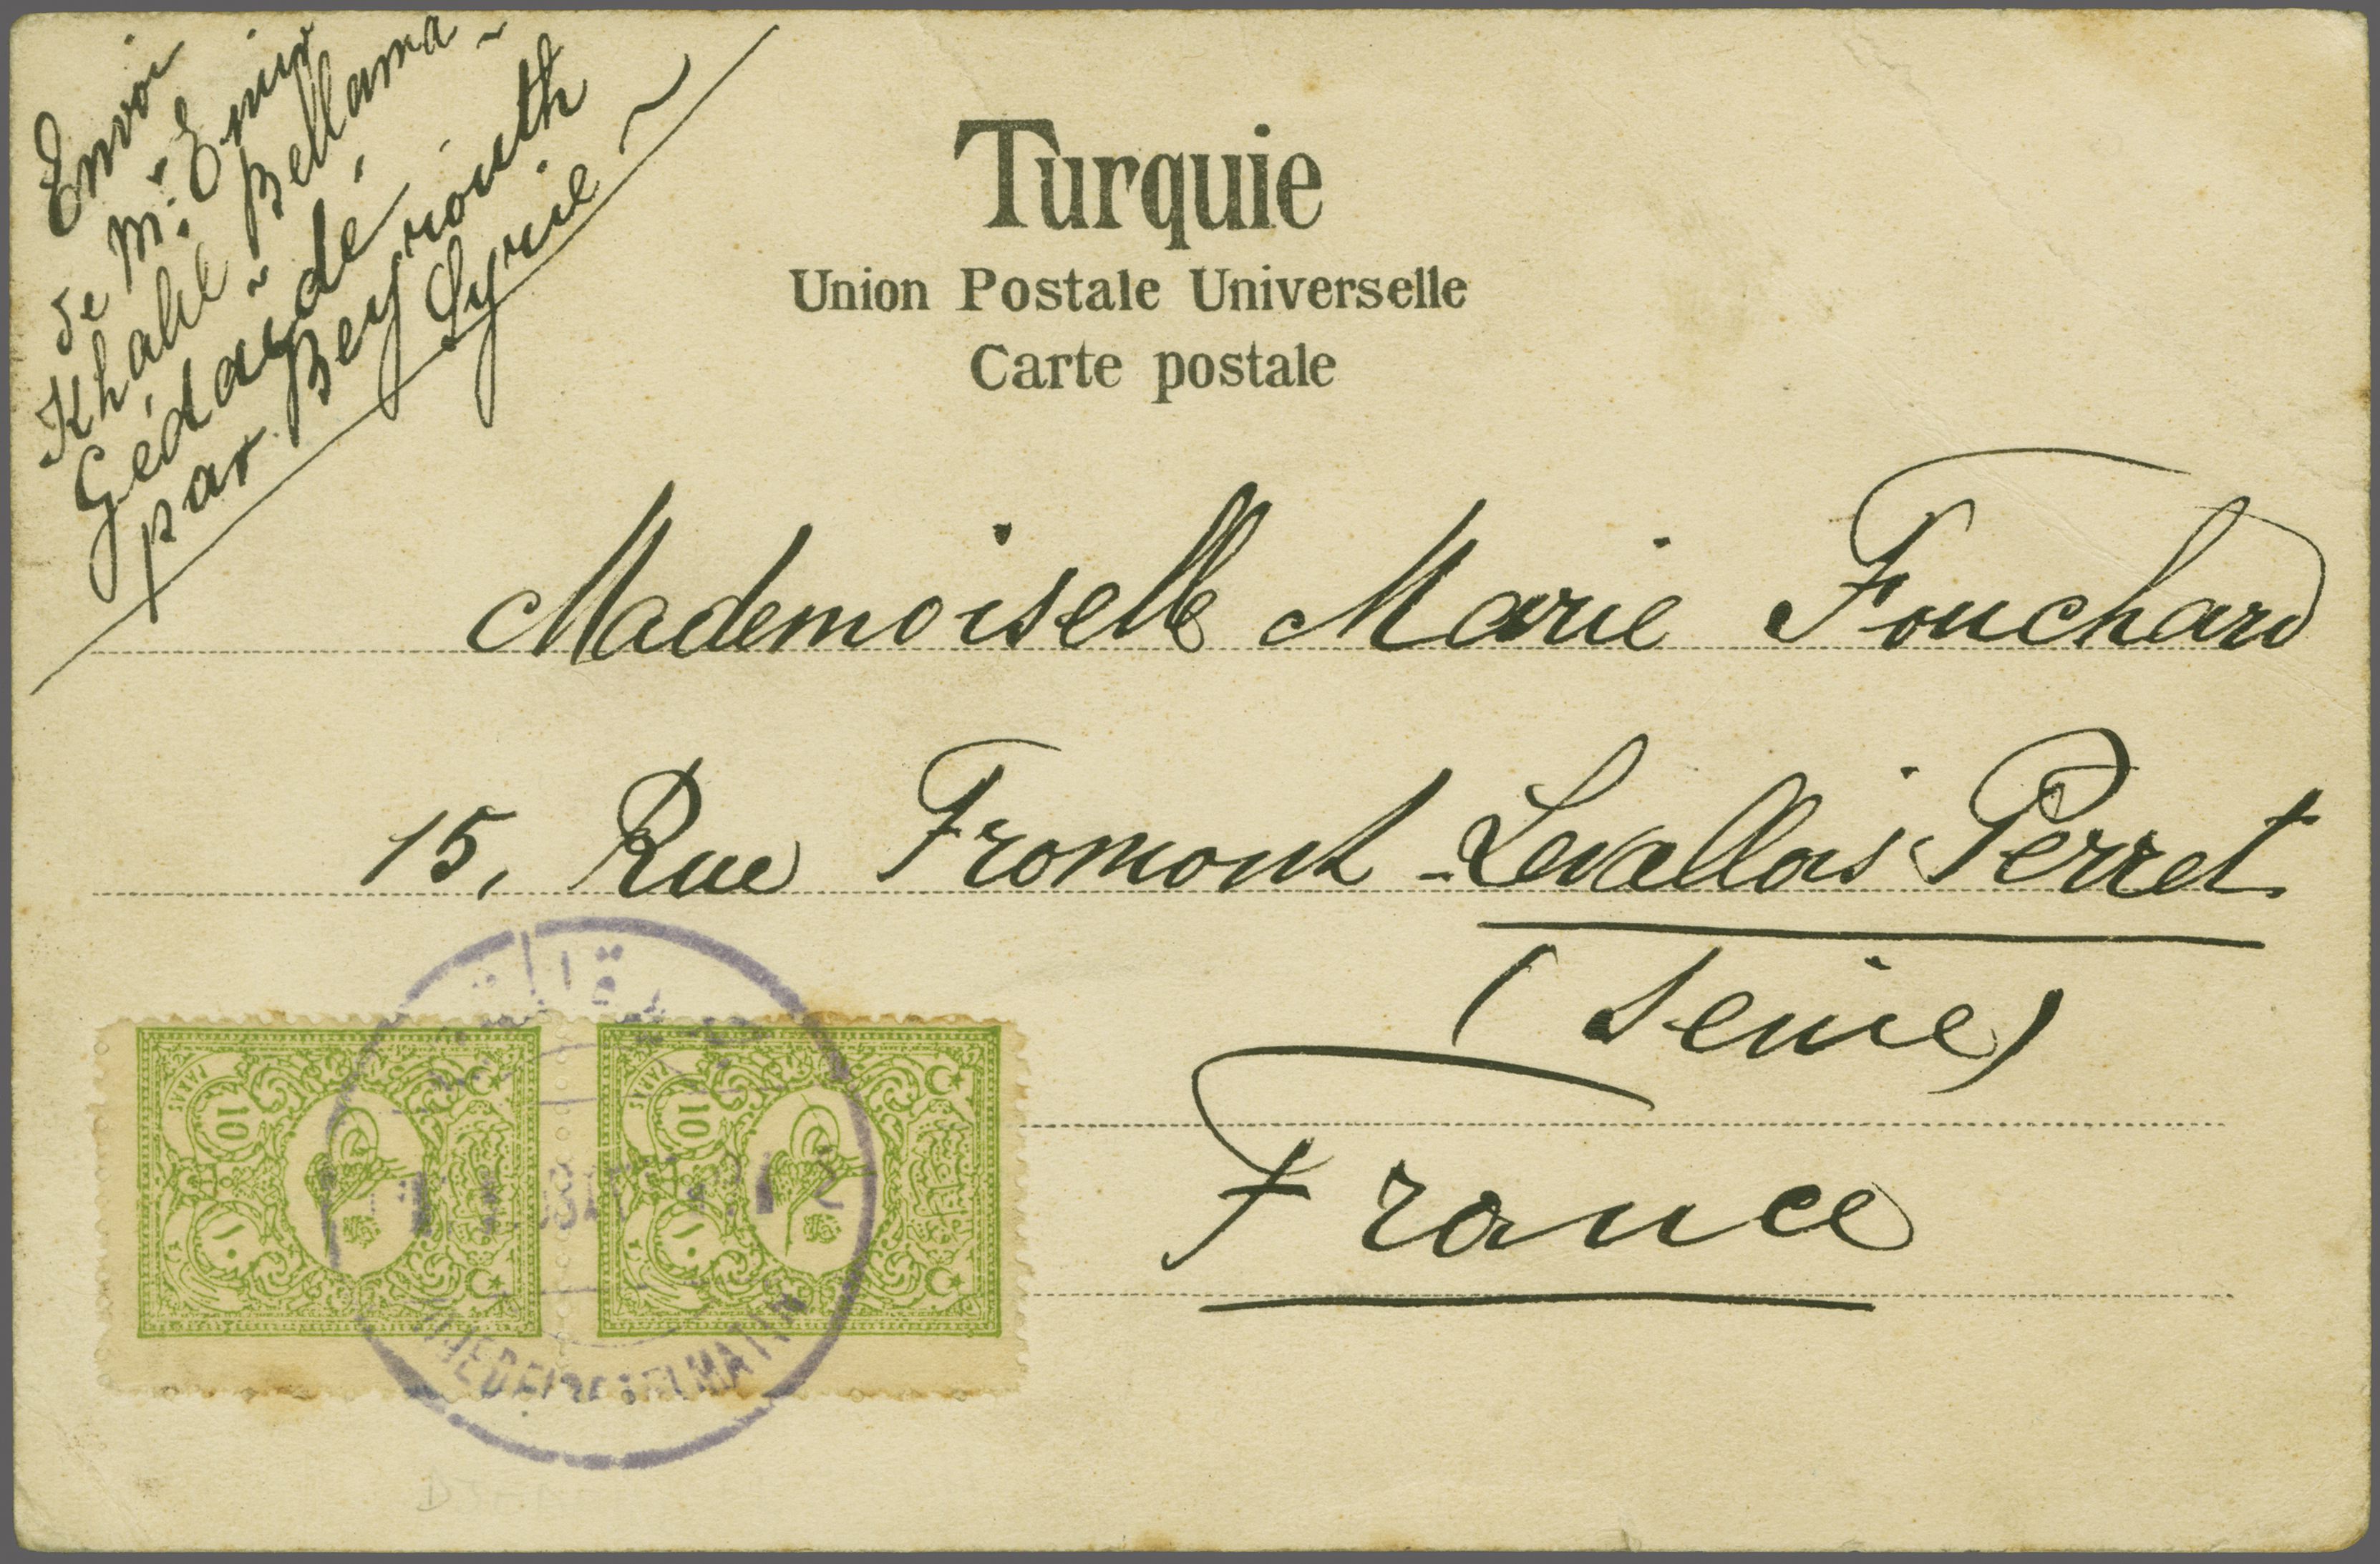 Envoi
de Mr. Emir
Khalil Bellama
Gédaydé
par Beyrouth
Syrie
Turquie
Union Postale Universelle
Carte postale
Mademoiselle Marie Fouchard
15, Rue Fromont - Levallois Perret
(Seine)
France
PARAS
10
١٠
PARAS
10
١٠